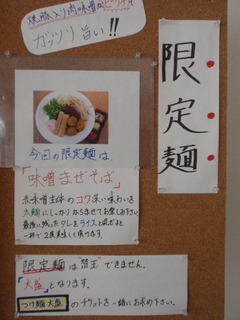 焼豚入り肉味噌が
ガッツリ旨い!!
限定麺
今回の限定麺は
「味噌まぜそば」
赤味噌主体のコク深い味わいを
太麺にしっかりからませてお楽しみ下さい。
最後に残ったタレをライスと混ぜると
一杯で2度美味しく頂けます。
限定麺は"替玉"できません。
「大盛」となります。
つけ麺大盛のチケットを一緒にお求め下さい。